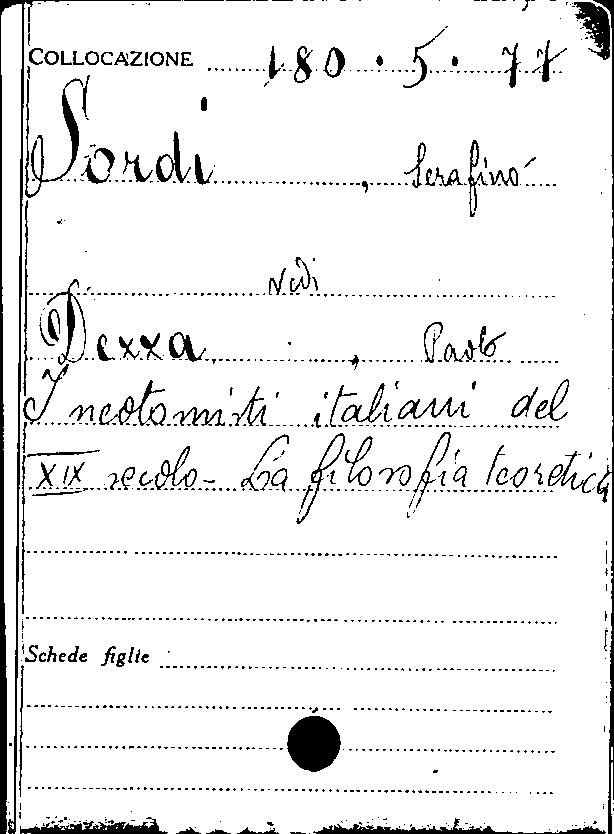 COLLOCAZIONE 180 · 5 · 77
Sordi, Serafino
Vedi
Dezza, Paolo
I neotomisti italiani del
XIX secolo - La filosofia teoretica
Schede figlie